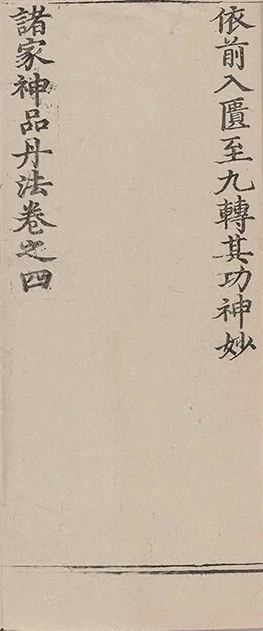 依前入匱至九轉其功神妙
諸家神品丹法卷之四